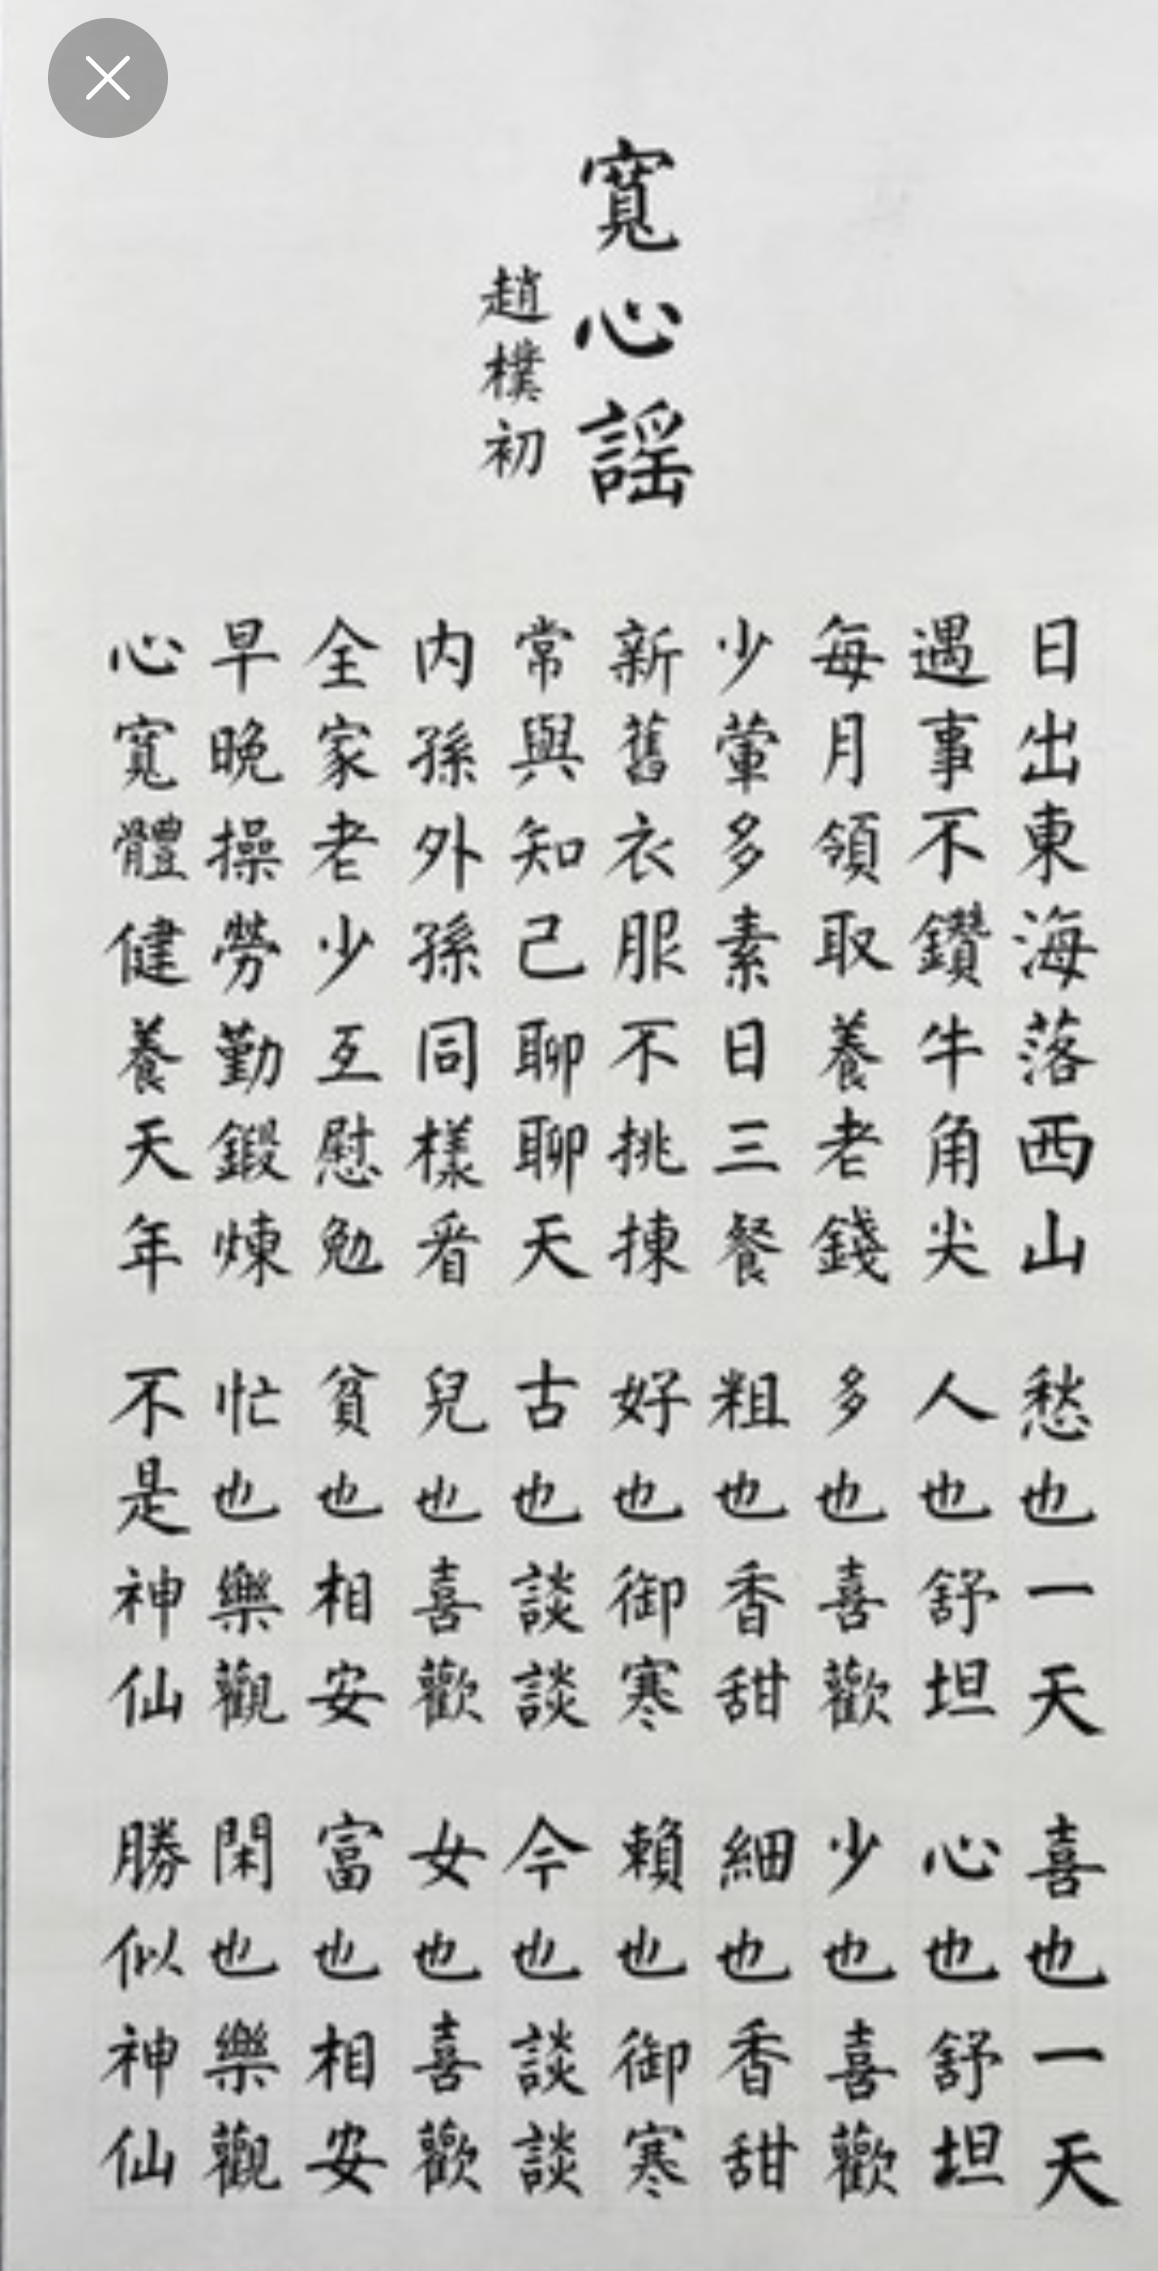 寬心謠
趙樸初
日出東海落西山 愁也一天 喜也一天
遇事不鑽牛角尖 人也舒坦 心也舒坦
每月領取養老錢 多也喜歡 少也喜歡
少葷多素日三餐 粗也香甜 細也香甜
新舊衣服不挑揀 好也御寒 賴也御寒
常與知己聊聊天 古也談談 今也談談
内孫外孫同樣看 兒也喜歡 女也喜歡
全家老少互慰勉 貧也相安 富也相安
早晚操勞勤鍛煉 忙也樂觀 閑也樂觀
心寬體健養天年 不是神仙 勝似神仙